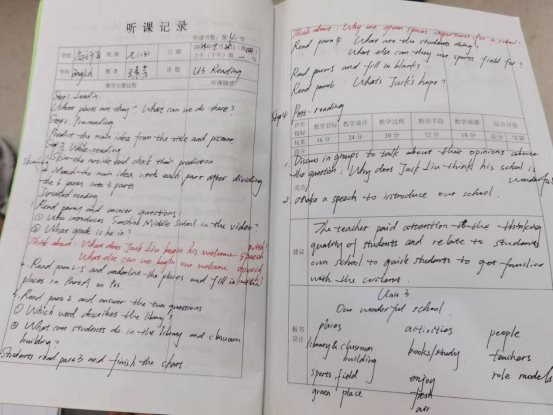 听课记录
听课节数: 第 4 节
学校 班级 七(1) 日期
学科 English 教者 课题 U3 Reading
教学主要过程 听课随感
Step1 Lead in
What places are they? What can we do there?
Step2 Pre-reading
Predict the main idea from the title and pictures
Step3 While-reading
Skim the article and check their prediction
Match the main idea with each part after dividing
the 6 paras into 3 parts
Detailed reading
1. Read para1 and answer questions:
① Who introduces Sunshine Middle School in the video?
② What grade is he in?
Think about: What does Jack Liu begin his welcome speech with?
What else can we begin our welcome speech
Read para2-5 and underline the places and fill in
places in Part A on P.
Read para2 and answer the two questions
① Which word describes the library?
② What can students do in the library and classroom
building?
Students read para3 and finish the chart
Think about: Why are green spaces important for a school?
Read para4 What are the students doing?
What else can they use sports field for?
Read para5 and fill in blanks
Read para6 What's Jack's hope?
Step4 Post-reading
评价 教学目标 教学设计 教学过程 教学手段 教学效果 综合评价
权重 16分 24分 30分 12分 18分 总分 等第
得分
1. Discuss in groups to talk about their opinions about
the question: Why does Jack Liu think his school is
wonderful?
2. Make a speech to introduce our school.
建议
The teacher paid attention to the thinking
quality of students and relate to students'
own school to guide students to get familiar
with the content.
板书设计
Unit 3
Our wonderful school
places activities people
library & classroom building books/study teachers
sports field enjoy role models
green place fresh
air